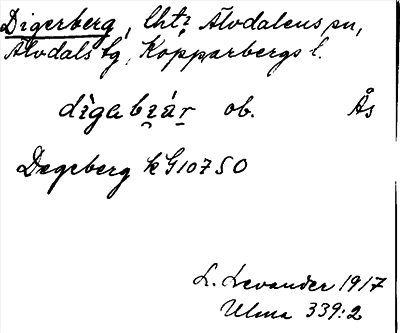 Digerberg, Cht: Älvdalens sn,
Älvdals tg, Kopparbergs l.
dìgabiár ob. Ås
Degeberg k G1075 O
L. Levander 1917
Ulma 339:2